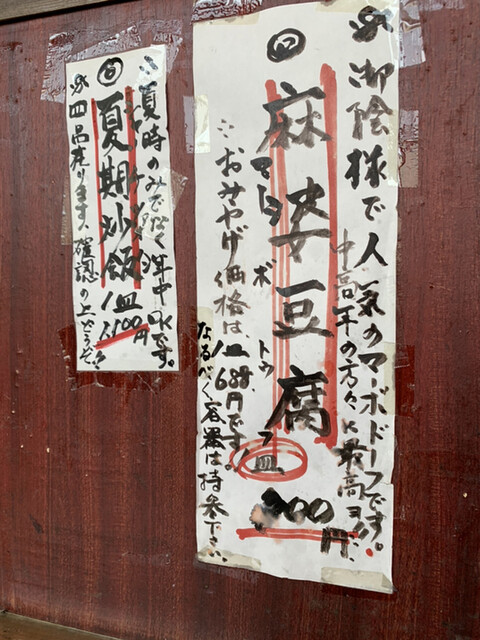 御陰様で人気のマーボドーフです。
中高年の方々に最高ヨ!!
㊃
麻婆豆腐
マーボトウフ
一皿
900円
おみやげ価格は、一皿688円です。
なるべく容器は持参下さい。
夏時のみでなく年中OKです。
夏期炒飯
一皿
1,100円
四品有ります、確認の上どうぞ